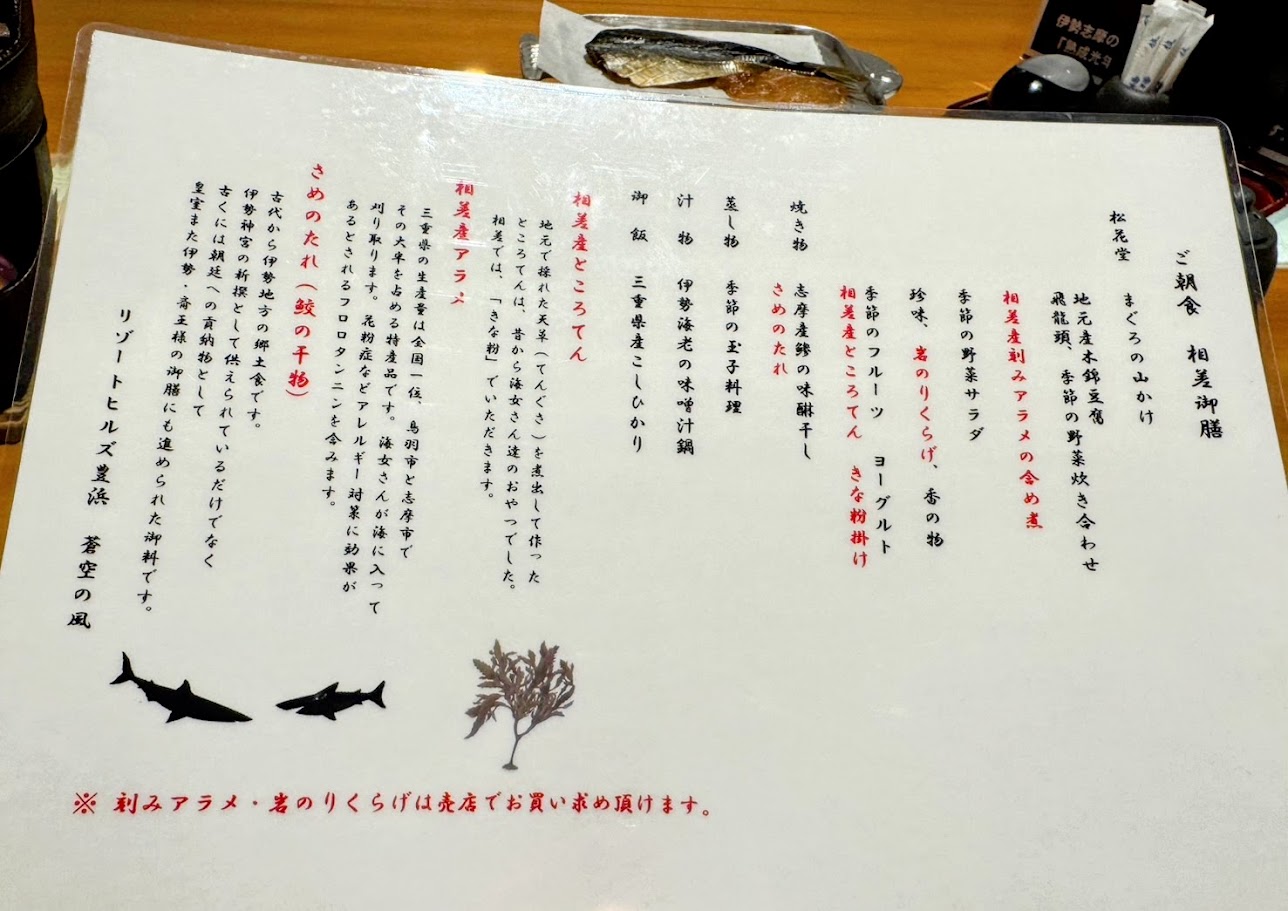 ご朝食　相差御膳
松花堂　まぐろの山かけ
地元産木綿豆腐
飛龍頭、季節の野菜炊き合わせ
相差産刻みアラメの含め煮
季節の野菜サラダ
珍味、岩のりくらげ、香の物
季節のフルーツ　ヨーグルト
相差産ところてん　きな粉掛け
焼き物　志摩産鯵の味醂干し
さめのたれ
蒸し物　季節の玉子料理
汁　物　伊勢海老の味噌汁鍋
御　飯　三重県産こしひかり
相差産ところてん
地元で採れた天草（てんぐさ）を煮出して作った
ところてんは、昔から海女さん達のおやつでした。
相差では、「きな粉」でいただきます。
相差産アラメ
三重県の生産量は全国一位、鳥羽市と志摩市で
その大半を占める特産品です。海女さんが海に入って
刈り取ります。花粉症などアレルギー対策に効果が
あるとされるフロロタンニンを含みます。
さめのたれ（鮫の干物）
古代から伊勢地方の郷土食です。
伊勢神宮の神撰として供えられているだけでなく
古くには朝廷への貢納物として
皇室また伊勢・斎王様の御膳にも進められた御料です。
リゾートヒルズ豊浜　蒼空の風
※ 刻みアラメ・岩のりくらげは売店でお買い求め頂けます。
伊勢志摩の
「熟成光